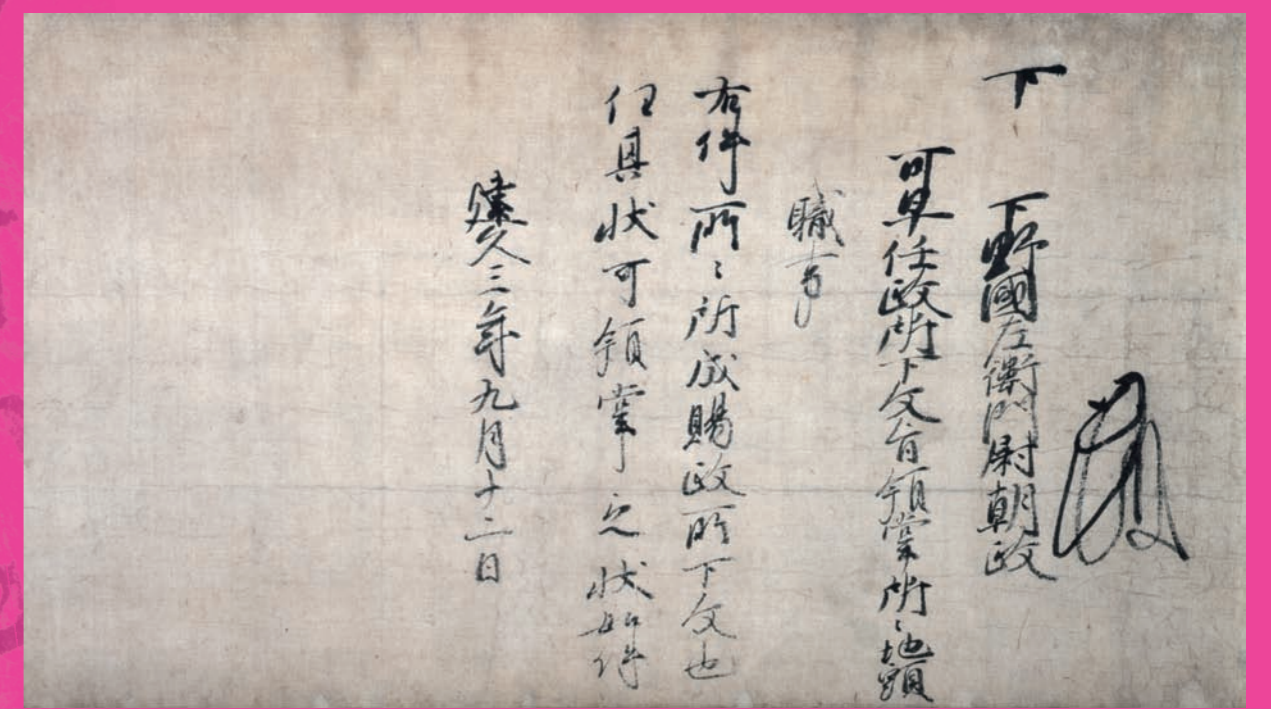 下　下野國左衛門尉朝政
可早任政所下文旨領掌所〻地頭
職事
右件所〻所成賜政所下文也
任其状可領掌之状如件
建久三年九月十二日